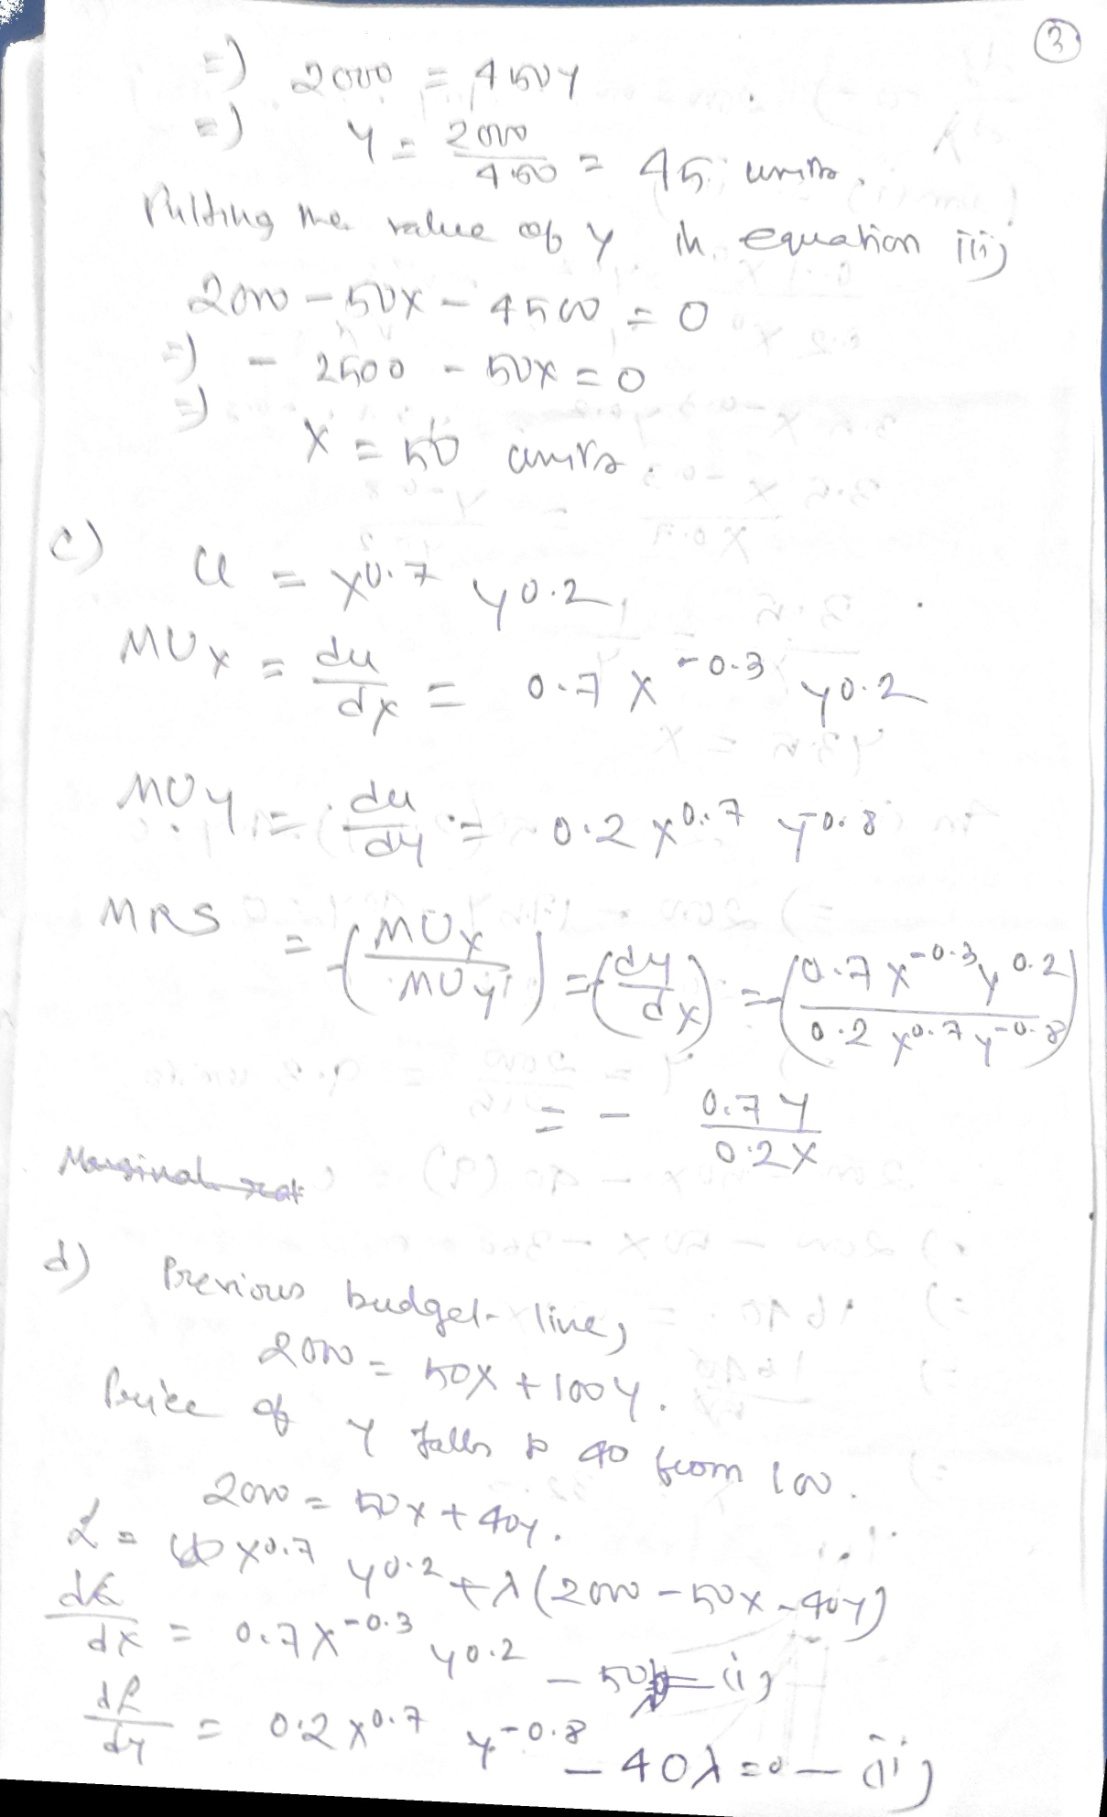 3
=) 2000 = 450Y
=) Y = 2000/450 = 45 units.
Putting the value of Y in equation iii)
2000 - 50X - 4500 = 0
=) - 2500 - 50X = 0
=) X = 50 units.
c) U = X^0.7 Y^0.2
MUX = du/dx = 0.7 X^-0.3 Y^0.2
MUY = du/dy = 0.2 X^0.7 Y^-0.8
MRS = -(MUX/MUY) = -(dy/dx) = -(0.7 X^-0.3 Y^0.2 / 0.2 X^0.7 Y^-0.8)
= - 0.7Y/0.2X
d) Previous budget line,
2000 = 50X + 100Y.
Price of Y falls to 40 from 100.
2000 = 50X + 40Y.
L = X^0.7 Y^0.2 + λ(2000 - 50X - 40Y)
dL/dX = 0.7X^-0.3 Y^0.2 - 50 (i)
dL/dY = 0.2X^0.7 Y^-0.8 - 40λ = 0 — (ii)